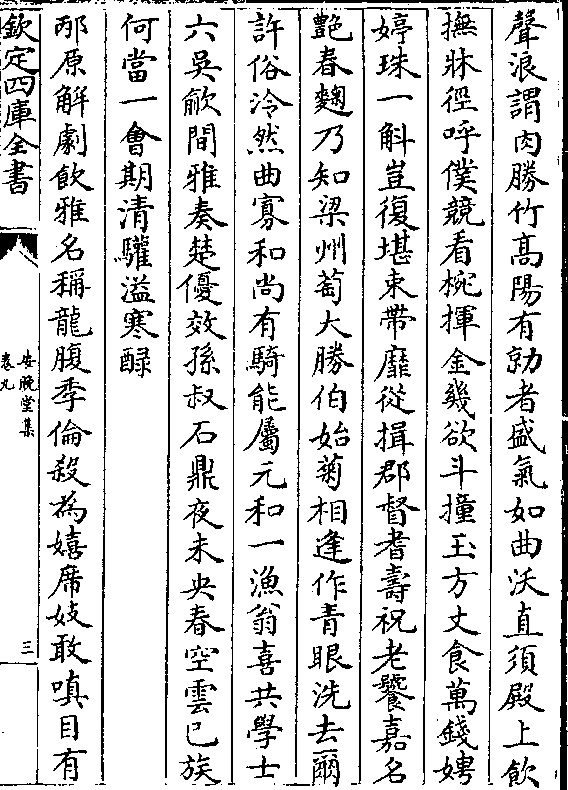 聲浪謂肉勝竹高陽有勍者盛氣如曲沃直須殿上飲
撫牀徑呼僕競看椀揮金幾欲斗撞玉方丈食萬錢娉
婷珠一斛豈復堪束帶靡從揖郡督耆壽祝老饕嘉名
艶春麴乃知梁州萄大勝伯始菊相逢作青眼洗去爾
許俗泠然曲寡和尚有騎能屬元和一漁翁喜共學士
六吳歈間雅奏楚優效孫叔石鼎夜未央春空雲已族
何當一會期清驩溢寒醁
邴原解劇飲雅名稱龍腹季倫殺為嬉席妓敢嗔目有
欽定四庫全書
安晚堂集
卷九
三